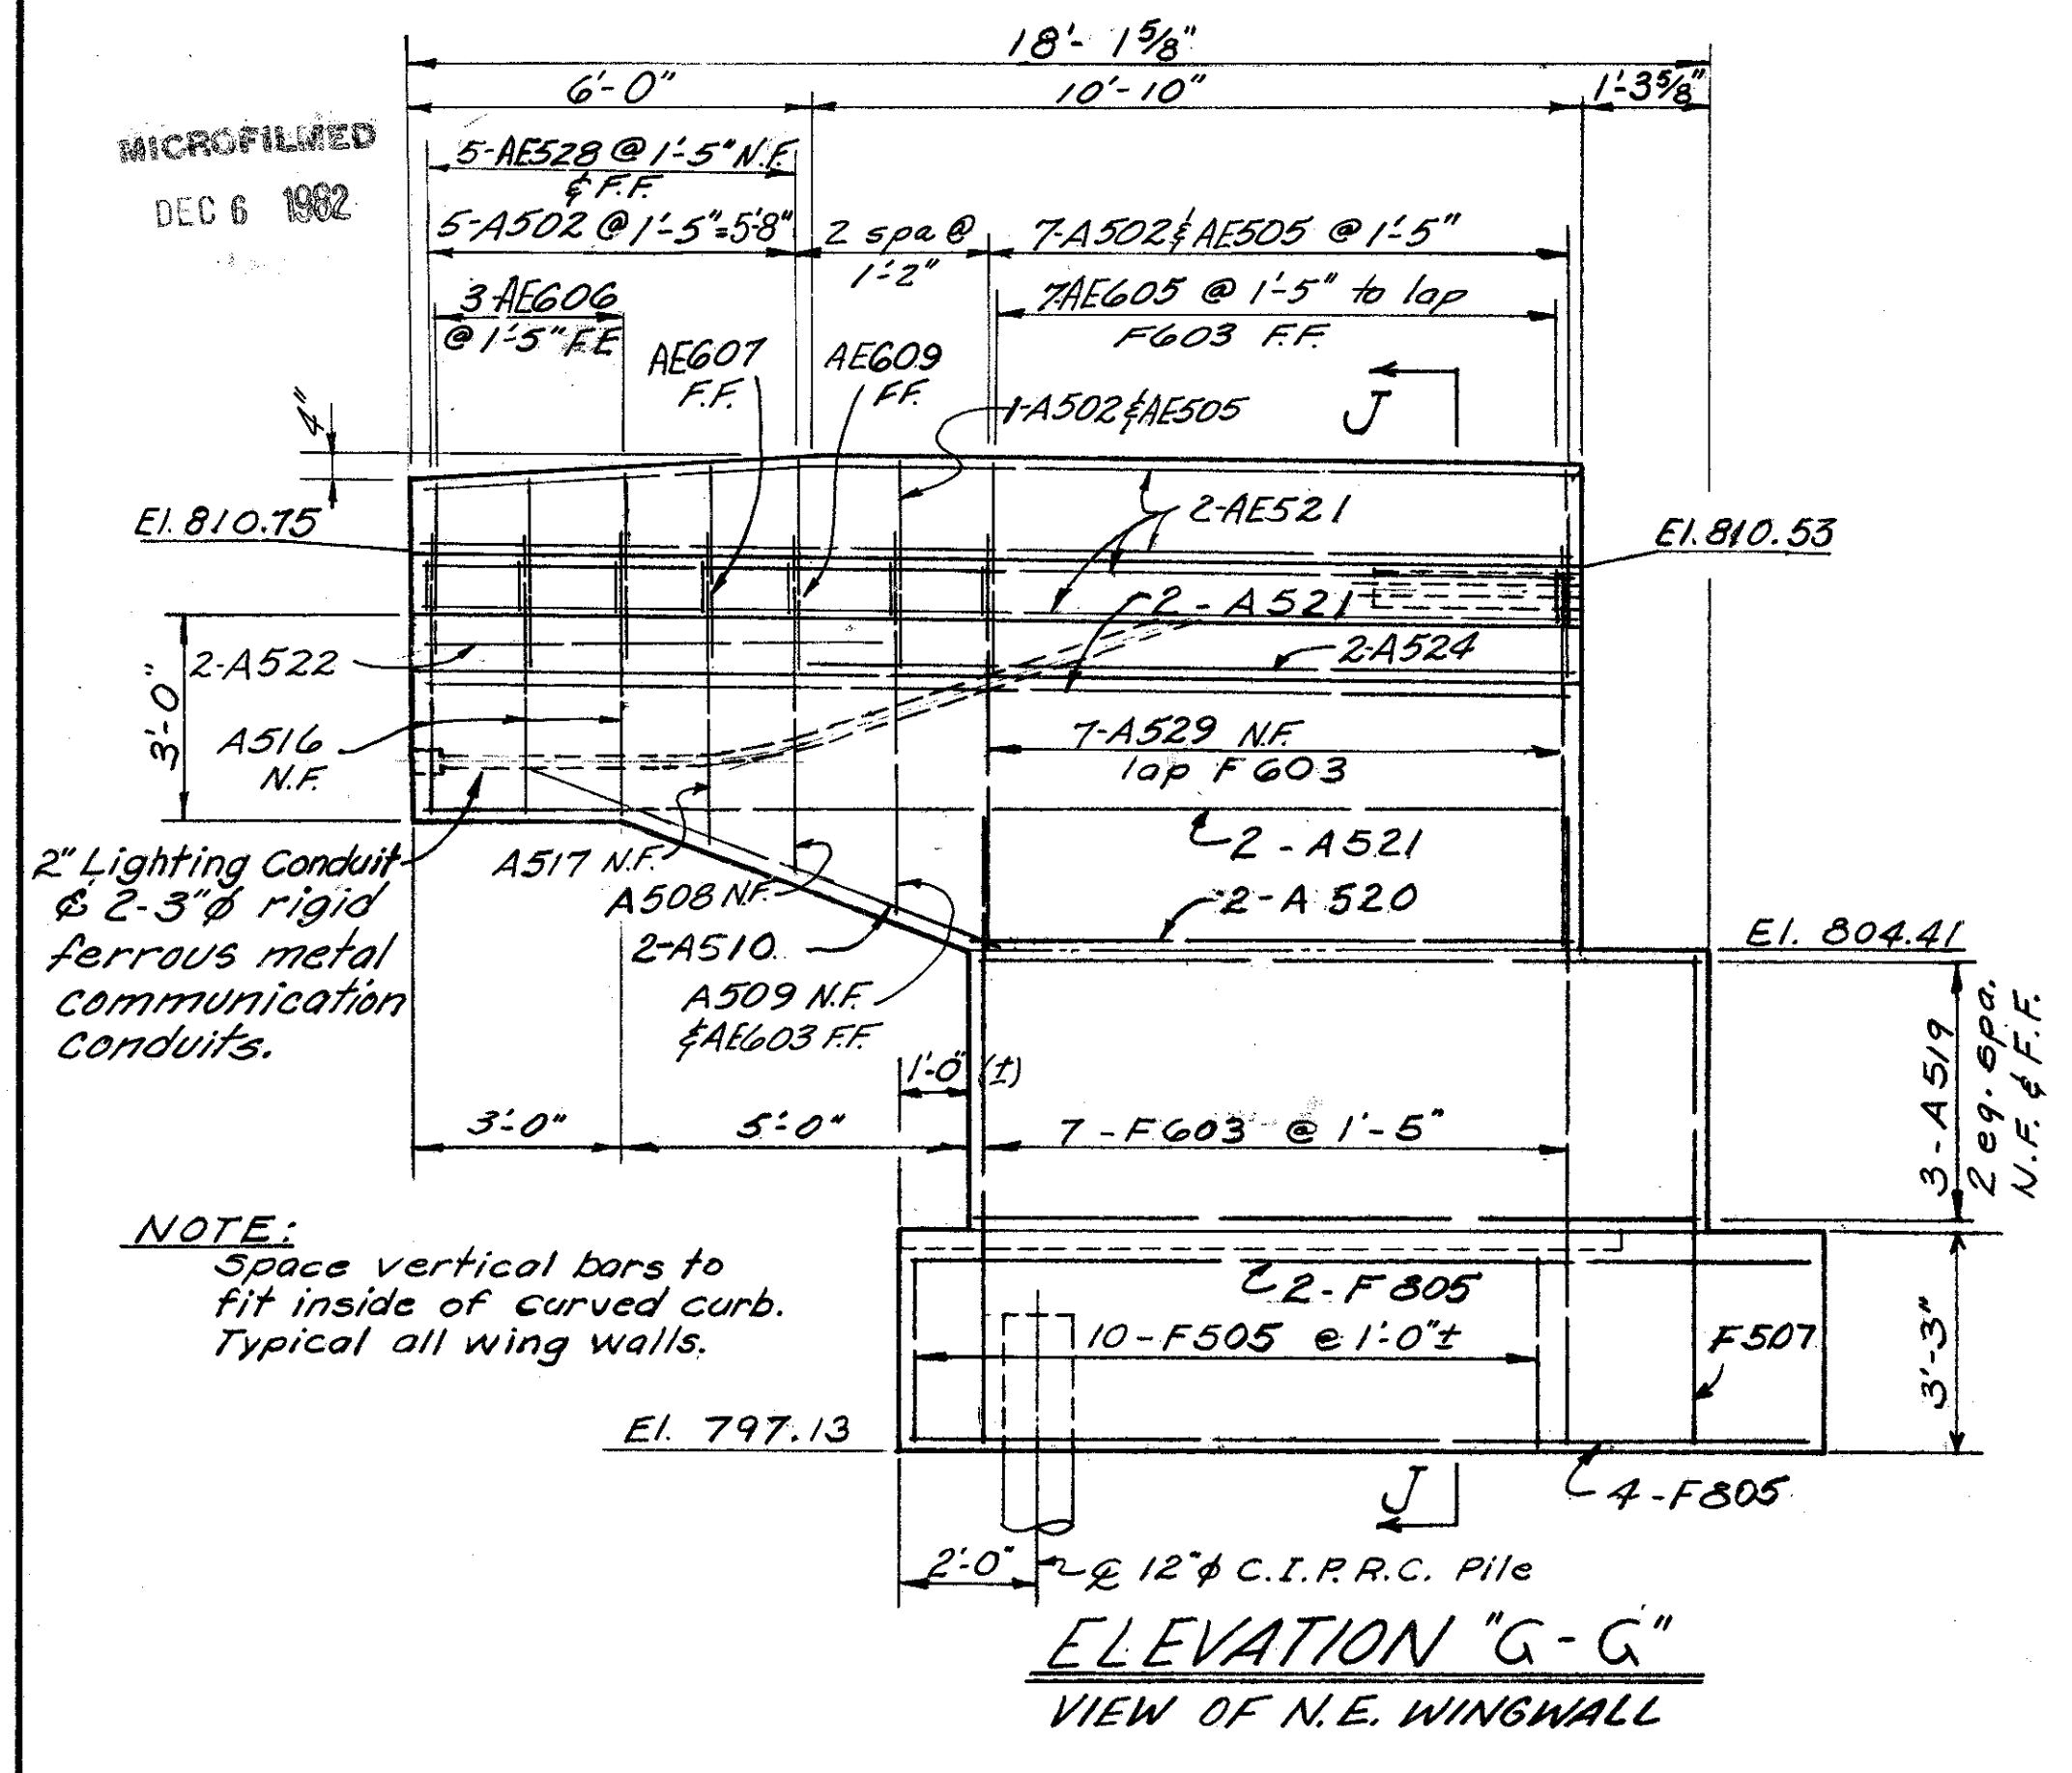 18'- 1 5/8"
6'-0"
10'-10"
1'-3 5/8"
MICROFILMED
DEC 6 1982
5-AE528 @ 1'-5" N.F.
& F.F.
5-A502 @ 1'-5"=5'-8"
2 spa @
1'-2"
7-A502 & AE505 @ 1'-5"
3-AE606
@ 1'-5" F.F.
7-AE605 @ 1'-5" to lap
F603 F.F.
AE607
F.F.
AE609
F.F.
1-A502 & AE505
J
4"
El. 810.75
2-AE521
El. 810.53
2-A521
2-A522
2-A524
3'-0"
A516
N.F.
7-A529 N.F.
lap F603
2-A521
2" Lighting Conduit
& 2-3"ø rigid
ferrous metal
communication
conduits.
A517 N.F.
A508 N.F.
2-A520
2-A510
El. 804.41
A509 N.F.
& AE603 F.F.
1'-0" (±)
3-A519
2 eq. spa.
N.F. & F.F.
3'-0"
5'-0"
7-F603 @ 1'-5"
NOTE:
Space vertical bars to
fit inside of curved curb.
Typical all wing walls.
2-F805
10-F505 @ 1'-0"±
F507
3'-3"
El. 797.13
J
4-F805
2'-0"
℄ 12"ø C.I.P.R.C. Pile
ELEVATION "G-G"
VIEW OF N.E. WINGWALL